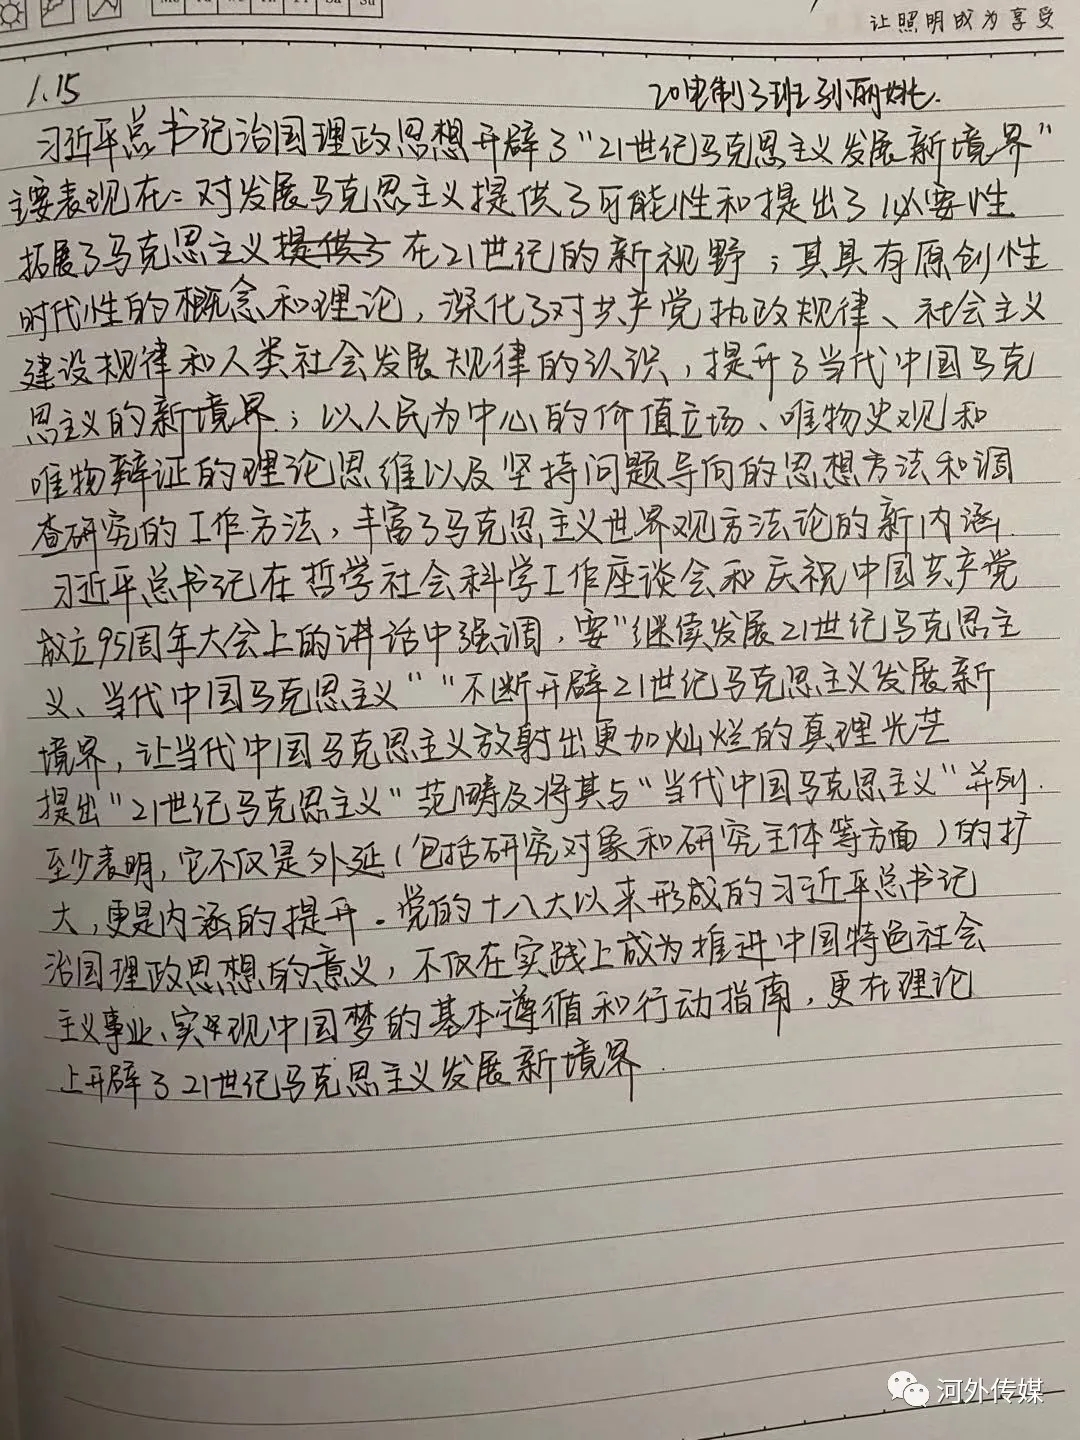 Mo Tu We Th Fr Sa Su
让照明成为享受
1.15
20电制3班 孙丽姚.
习近平总书记治国理政思想开辟了“21世纪马克思主义发展新境界”
主要表现在：对发展马克思主义提供了可能性和提出了必要性
拓展了马克思主义提供了在21世纪的新视野；其具有原创性
时代性的概念和理论，深化了对共产党执政规律、社会主义
建设规律和人类社会发展规律的认识，提升了当代中国马克
思主义的新境界；以人民为中心的价值立场、唯物史观和
唯物辩证的理论思维以及坚持问题导向的思想方法和调
查研究的工作方法，丰富了马克思主义世界观方法论的新内涵.
习近平总书记在哲学社会科学工作座谈会和庆祝中国共产党
成立95周年大会上的讲话中强调，要“继续发展21世纪马克思主
义、当代中国马克思主义”“不断开辟21世纪马克思主义发展新
境界，让当代中国马克思主义放射出更加灿烂的真理光芒
提出“21世纪马克思主义”范畴及将其与“当代中国马克思主义”并列.
至少表明，它不仅是外延（包括研究对象和研究主体等方面）的扩
大，更是内涵的提升。党的十八大以来形成的习近平总书记
治国理政思想的意义，不仅在实践上成为推进中国特色社会
主义事业、实现中国梦的基本遵循和行动指南，更在理论
上开辟了21世纪马克思主义发展新境界.
河外传媒